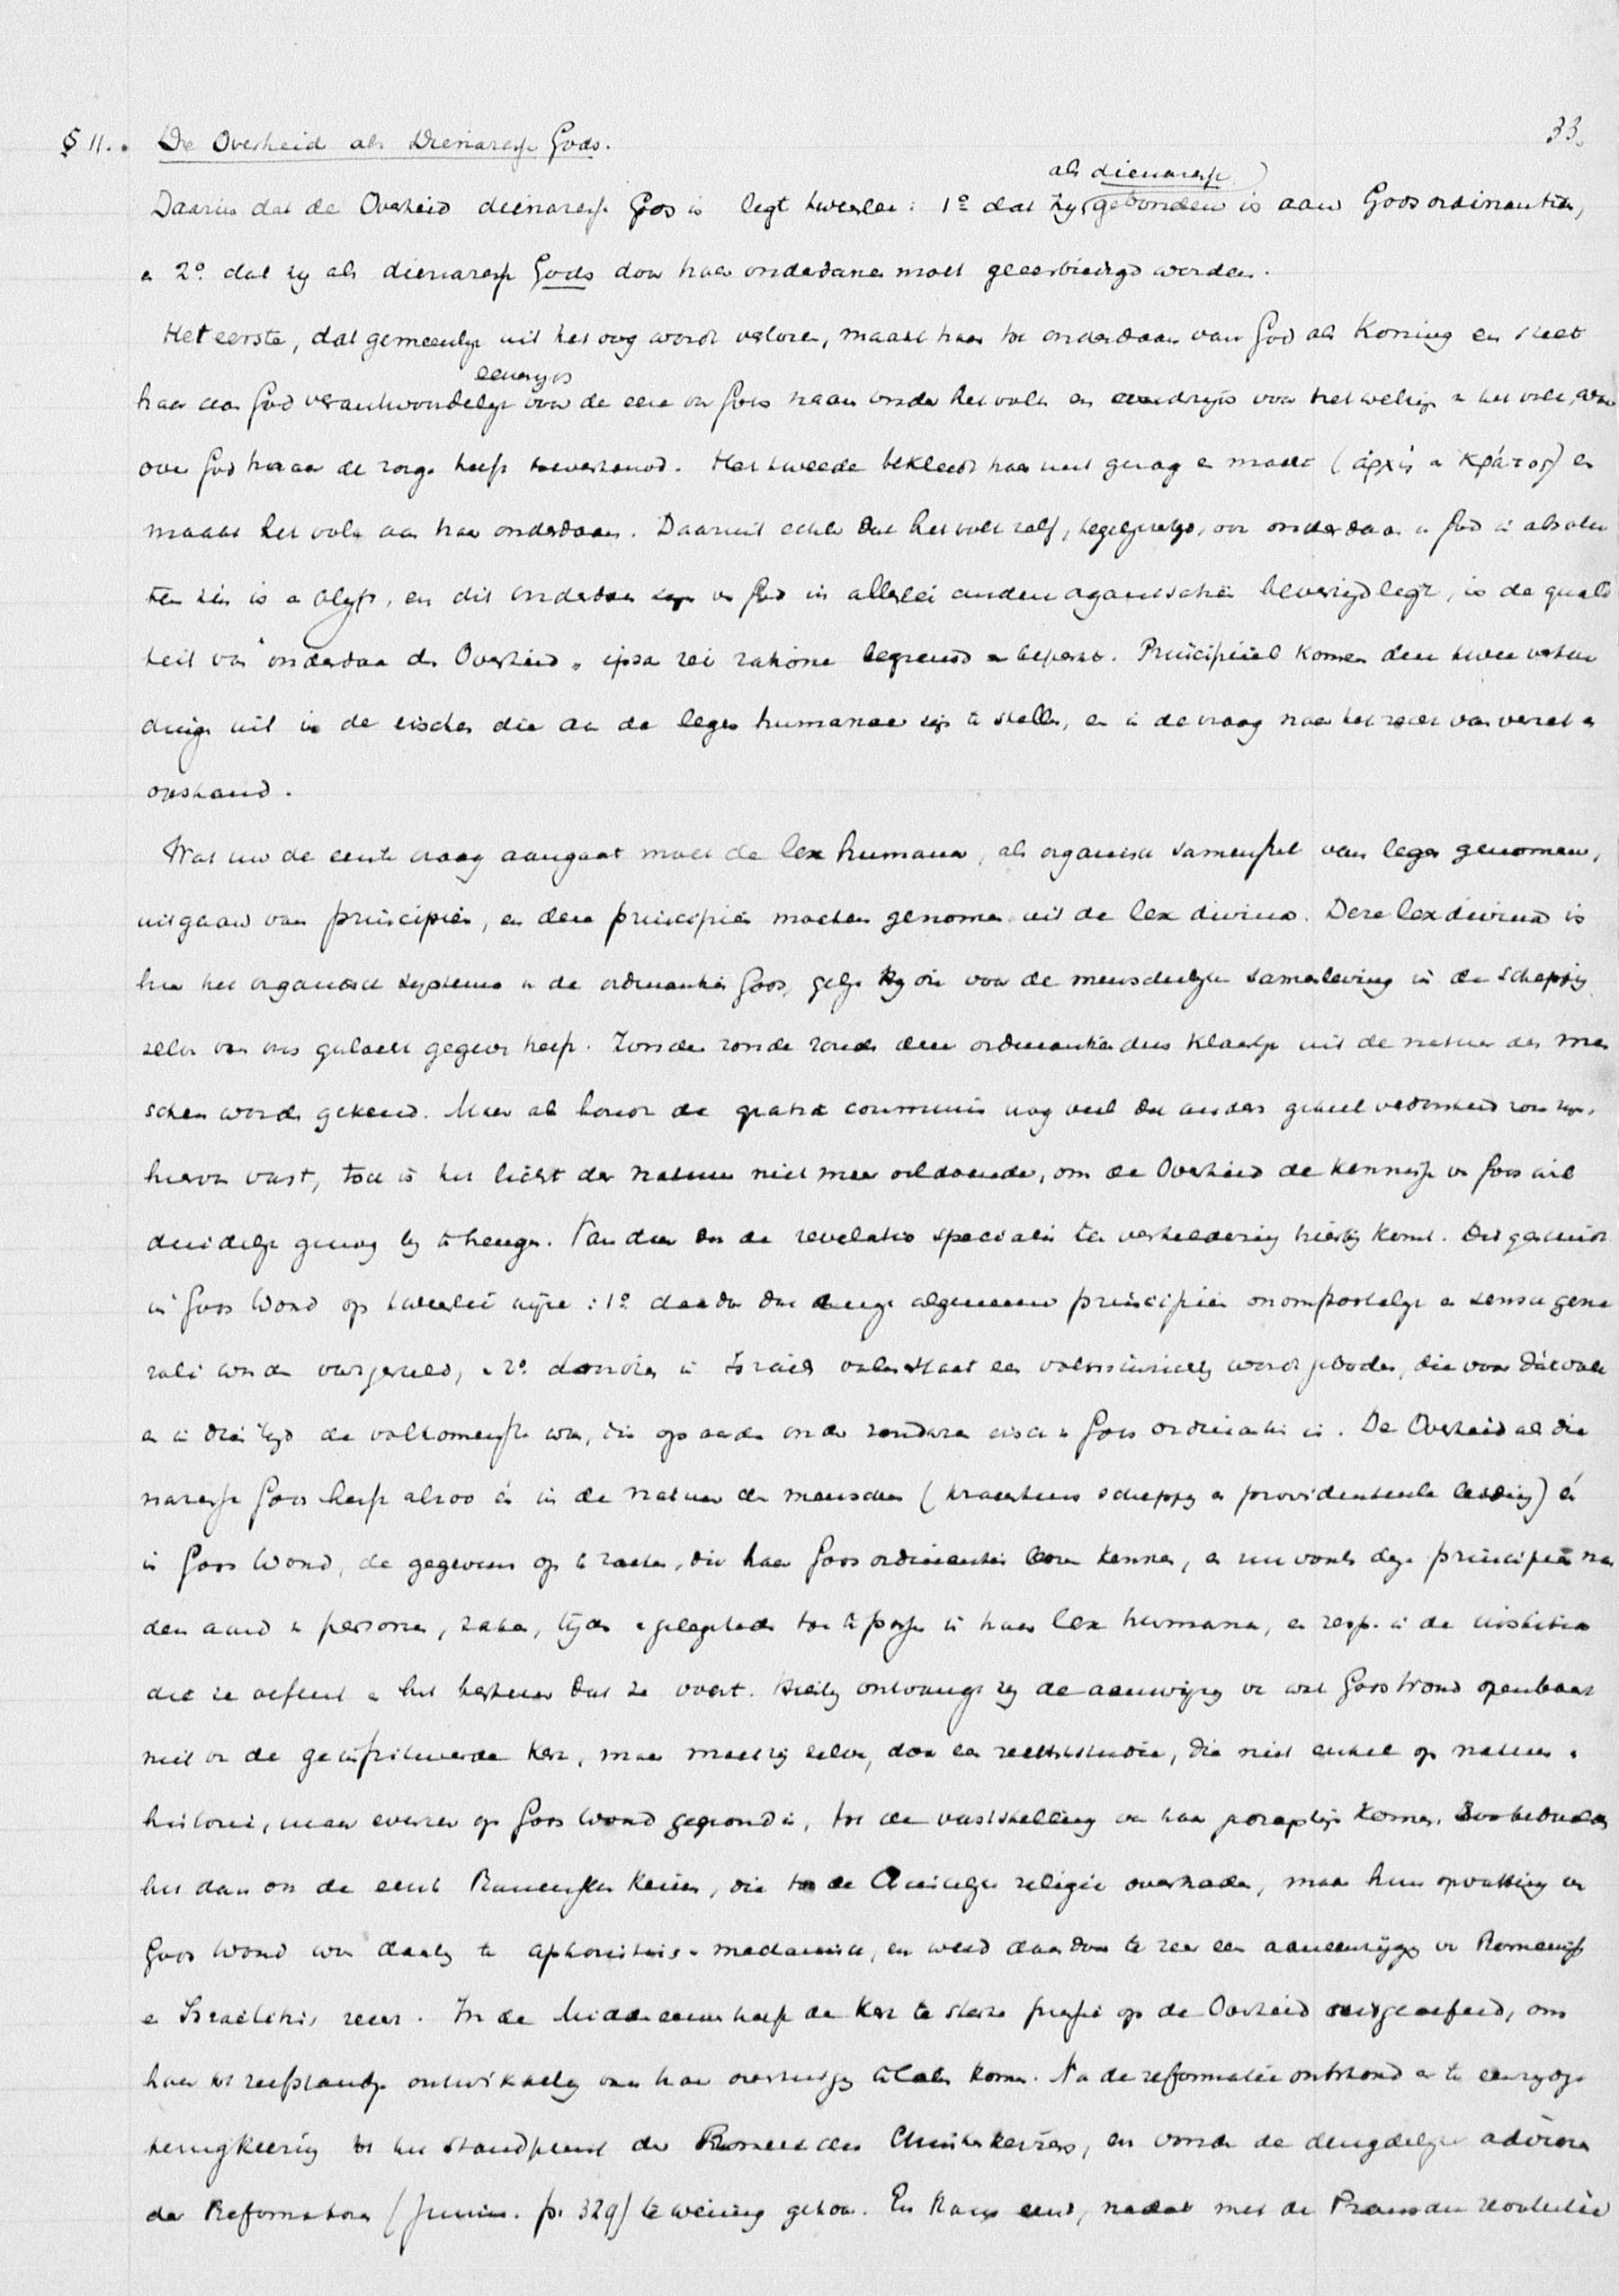 33.
§ 11. De Overheid als Dienaresse Gods.
als dienaresse
Daarin dat de Overheid dienaresse Gods is legt tweeërlei: 1º dat zij gebonden is aan Gods ordinantiën,
en 2º dat zij als dienaresse Gods door haar onderdanen moet geëerbiedigd worden.
Het eerste, dat gemeenlijk uit het oog wordt verloren, maakt haar tot onderdaan van God als Koning en stelt
eenerzijds
haar aan God verantwoordelijk voor de eere van Gods naam onder het volk en anderzijds voor het welzijn van het volk, waar
over God haar de zorge heeft toevertrouwd. Het tweede bekleedt haar met gezag en macht (ἀρχή en κράτος) en
maakt het volk aan haar onderdaan. Daaruit echter dat het volk zelf, tegelijkertijd, ook onderdaan van God in absolu
ten zin is en blijft, en dit onderdaan zijn van God in allerlei andere organisatiën bevestigd legt, is de quali
teit van "onderdaan der Overheid" ipsa rei ratione begrensd en beperkt. Principieel komen deze twee verhou
dingen uit in de eischen die aan de leges humanae zijn te stellen, en in de vraag naar het recht van verzet en
opstand.
Wat nu de eerste vraag aangaat moet de lex humana, als organisch samenstel van leges genomen,
uitgaan van principiën, en deze principiën moeten genomen uit de lex divina. Deze lex divina is
hier het organisch systema van de ordinantiën Gods, gelijk Hij die voor de menschelijke samenleving in de schepping
zelve van ons geslacht gegeven heeft. Zonder zonde zouden deze ordinantiën dus klaarlijk uit de natuur des men
schen worden gekend. Maar al houdt de gratia communis nog veel dat anders geheel verdonkerd zou zijn,
hiervan vast, toch is het licht der natuur niet meer voldoende, om de Overheid de kennisse van Gods wil
duidelijk genoeg bij te brengen. Van daar dat de revelatio specialis ter verheldering hierbij komt. Dit geschiedt
in Gods Woord op tweeërlei wijze: 1º doordat de eenige algemeene principiën onomstootelijk en sensu gene
rali worden voorgesteld, en 2º doordien in Israëls volksstaat een volksinrichting wordt geboden, die voor dát volk
en in dien tijd de volkomenste was, die op aarde onder zondaren eisch van Gods ordinantiën is. De Overheid als die
naresse Gods heeft alzoo én in de natuur der menschen (krachtens schepping en providentieele leiding) én
in Gods Woord, de gegevens op te zoeken, die haar Gods ordinantiën leeren kennen, en nu voorts deze principiën naar
den aard van personen, zaken, tijden en gelegenheden toe te passen in haar lex humana, en resp. in de justitie
die ze oefent en het bestuur dat ze voert. Hierbij ontvangt zij de aanwijzing van wat Gods Woord openbaart
niet van de geïnstitueerde Kerk, maar moet zij zelve, door een rechtsstudie, die niet enkel op natuur en
historie, maar evenzeer op Gods Woord gegrond is, tot de vaststelling van haar praxis komen. Zoo bedoelden
het dan ook de eerste Romeinsche Keizers, die tot de Christelijke religie overtraden, maar hun opvatting van
Gods Woord was daarbij te aphoristisch en mechanisch, en werd daardoor te zeer een aaneenrijging van Romeinsch
en Israëlitisch recht. In de Middeleeuwen heeft de Kerk te sterke pressie op de Overheid uitgeoefend, om
haar tot zelfstandige ontwikkeling van haar overtuiging te laten komen. Na de reformatie ontstond er te eenzijdige
terugkeering tot het standpunt der Romeinsche Christenkeizers, en vonden de deugdelijke adviezen
der Reformatoren (Junius. p. 329) te weinig gehoor. En thans eerst, nadat met de Fransche revolutie